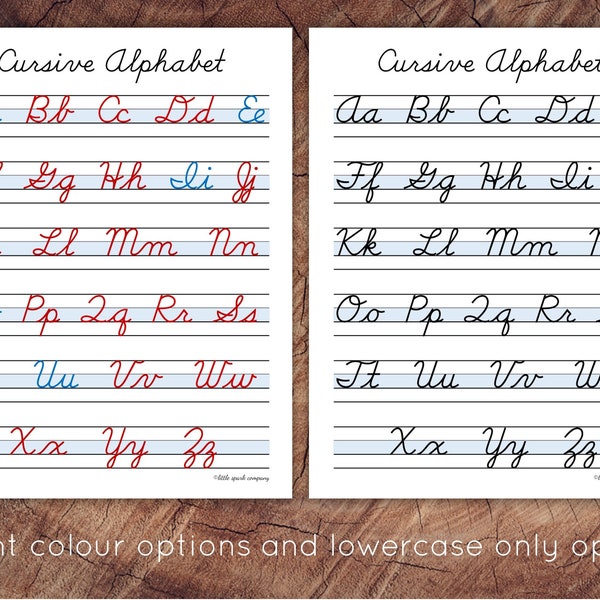 Cursive Alphabet
Bb Cc Dd Ee
Gg Hh Ii Jj
Ll Mm Nn
Pp Qq Rr Ss
Uu Vv Ww
Xx Yy Zz
©little spark company
Cursive Alphabet
Aa Bb Cc Dd
Ff Gg Hh Ii
Kk Ll Mm
Oo Pp Qq Rr
Tt Uu Vv
Xx Yy Zz
©little
colour options and lowercase only